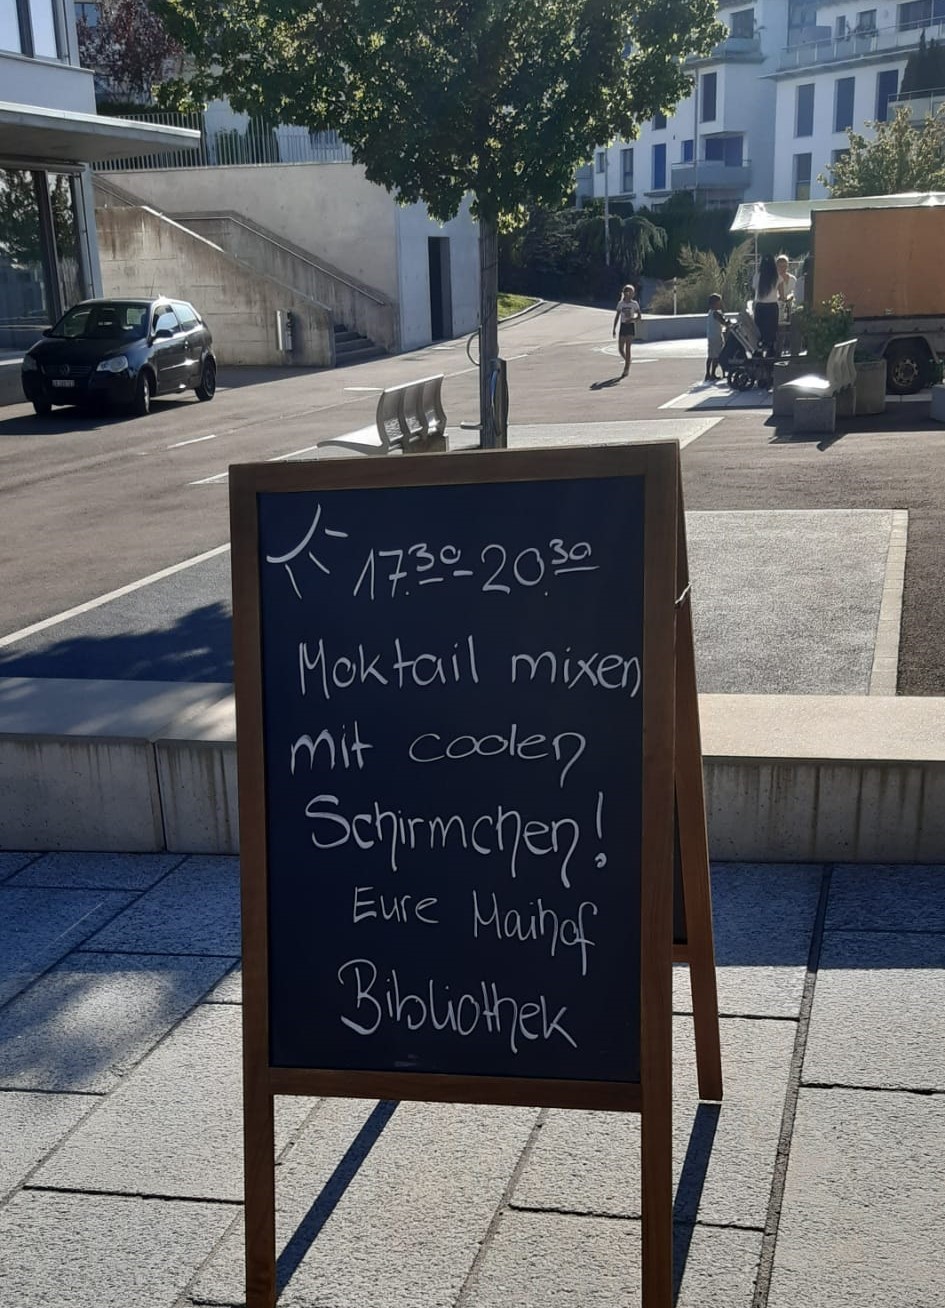 17.30-20.30
Moktail mixen
mit coolen
Schirmchen!
Eure Maihof
Bibliothek